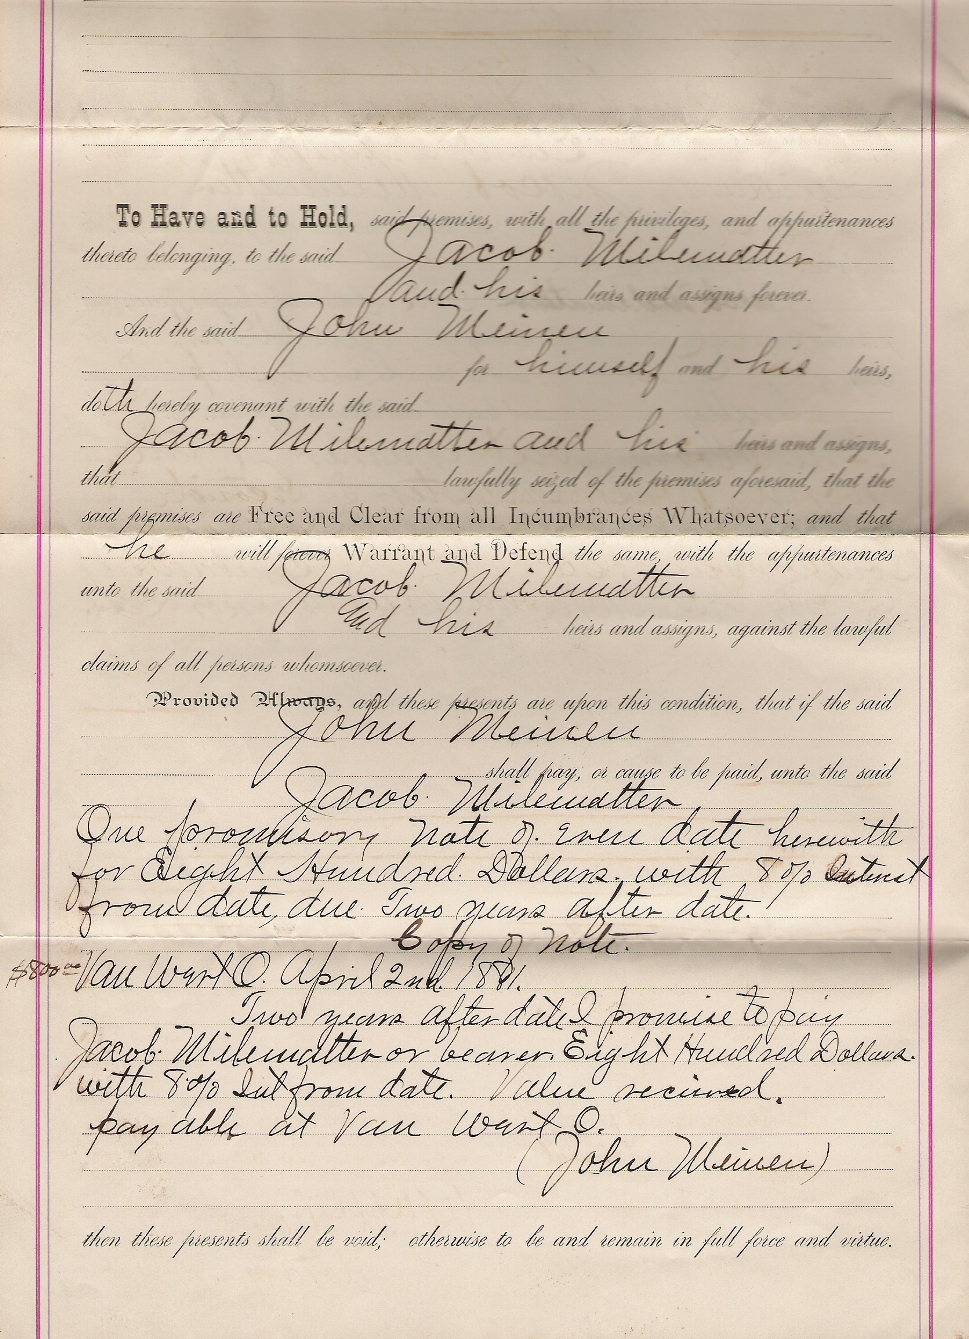 To Have and to Hold, said premises, with all the privileges, and appurtenances
thereto belonging, to the said Jacob Milematter
and his heirs and assigns forever.
And the said John Meinen
for himself and his heirs,
doth hereby covenant with the said
Jacob Milematter and his heirs and assigns,
that lawfully seized of the premises aforesaid, that the
said premises are Free and Clear from all Incumbrances Whatsoever; and that
he will forever Warrant and Defend the same, with the appurtenances
unto the said Jacob Milematter
And his heirs and assigns, against the lawful
claims of all persons whomsoever.
Provided Always, and these presents are upon this condition, that if the said
John Meinen
shall pay, or cause to be paid, unto the said
Jacob Milematter
One promisory note of even date herewith
for Eight Hundred Dollars. with 8% Interest
from date, due Two years after date.
Copy of Note.
$800.00 Van Wert O. April 2nd 1881.
Two years after date I promise to pay
Jacob Milematter or bearer Eight Hundred Dollars.
with 8% Int from date. Value recieved.
payable at Van Wert O.
(John Meinen)
then these presents shall be void; otherwise to be and remain in full force and virtue.